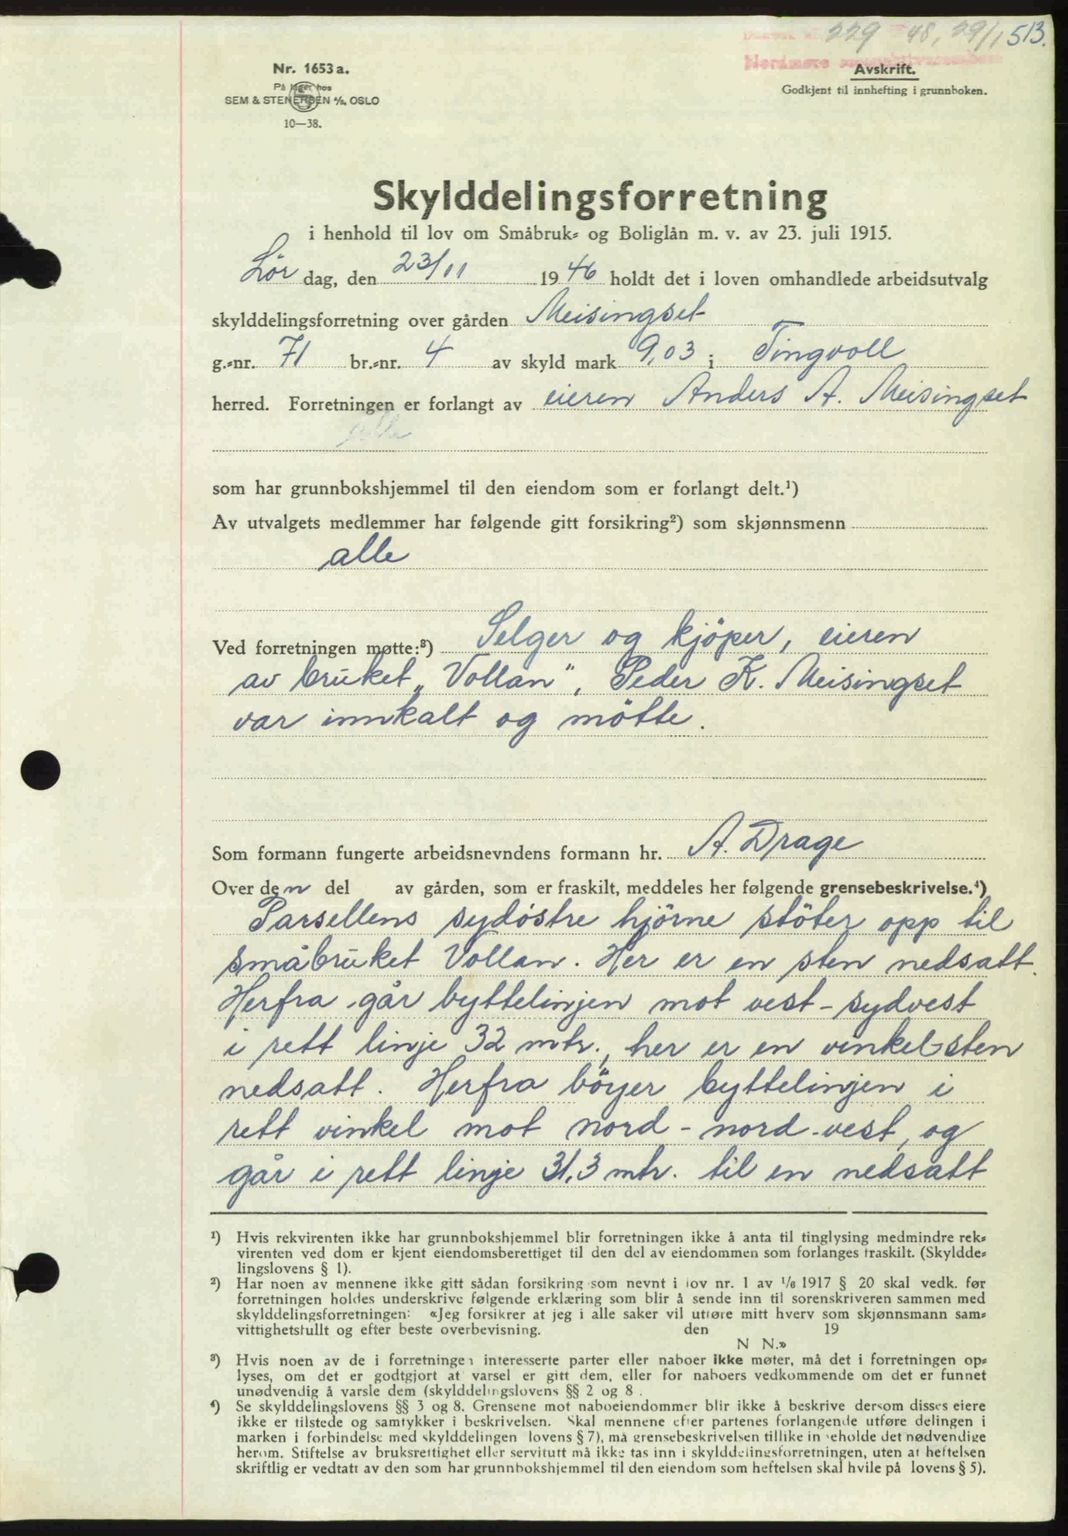 229 48, 29/1 513.
Nordmøre
Nr. 1653 a.
På lager hos
SEM & STENERSEN A/S, OSLO
10—38.
Avskrift.
Godkjent til innhefting i grunnboken.
Skylddelingsforretning
i henhold til lov om Småbruk- og Boliglån m. v. av 23. juli 1915.
Lør dag, den 23/11 1946 holdt det i loven omhandlede arbeidsutvalg
skylddelingsforretning over gården Meisingset
g.-nr. 71 br.-nr. 4 av skyld mark 9,03 i Tingvoll
herred. Forretningen er forlangt av eieren Anders A. Meisingset
alle
som har grunnbokshjemmel til den eiendom som er forlangt delt.¹)
Av utvalgets medlemmer har følgende gitt forsikring²) som skjønnsmenn
alle
Ved forretningen møtte:³) Selger og kjöper, eieren
av bruket „Vollan", Peder K. Meisingset
var innkalt og mötte.
Som formann fungerte arbeidsnevndens formann hr. A. Drage
Over den del av gården, som er fraskilt, meddeles her følgende grensebeskrivelse.⁴)
Parsellens sydöstre hjörne stöter opp til
småbruket Vollan. Her er en sten nedsatt.
Herfra går byttelinjen mot vest-sydvest
i rett linje 32 mtr., her er en vinkelsten
nedsatt. Herfra böyer byttelinjen i
rett vinkel mot nord-nord-vest, og
går i rett linje 31,3 mtr. til en nedsatt
¹) Hvis rekvirenten ikke har grunnbokshjemmel blir forretningen ikke å anta til tinglysing medmindre rek-
virenten ved dom er kjent eiendomsberettiget til den del av eiendommen som forlanges fraskilt. (Skyldde-
lingslovens § 1).
²) Har noen av mennene ikke gitt sådan forsikring som nevnt i lov nr. 1 av 1/6 1917 § 20 skal vedk. før
forretningen holdes underskrive følgende erklæring som blir å sende inn til sorenskriveren sammen med
skylddelingsforretningen: «Jeg forsikrer at jeg i alle saker vil utføre mitt hverv som skjønnsmann sam-
vittighetsfullt og efter beste overbevisning. den 19
N N.»
³) Hvis noen av de i forretningen interesserte parter eller naboer ikke møter, må det i forretningen op-
lyses, om det er godtgjort at varsel er gitt dem, eller for naboers vedkommende om det er funnet
unødvendig å varsle dem (skylddelingslovens §§ 2 og 8.
⁴) Se skylddelingslovens §§ 3 og 8. Grensene mot naboeiendommer blir ikke å beskrive dersom disses eiere
ikke er tilstede og samtykker i beskrivelsen. Skal mennene efter partenes forlangende utføre delingen i
marken i forbindelse med skylddelingen lovens § 7), må grensebeskrivelsen tillike inneholde det nødvendige
herom. Stiftelse av bruksrettighet eller servitutt må ikke tas inn i skylddelingsforretningen, uten at heftelsen
skriftlig er vedtatt av den som har grunnbokshjemmel til den eiendom som heftelsen skal hvile på lovens § 5).